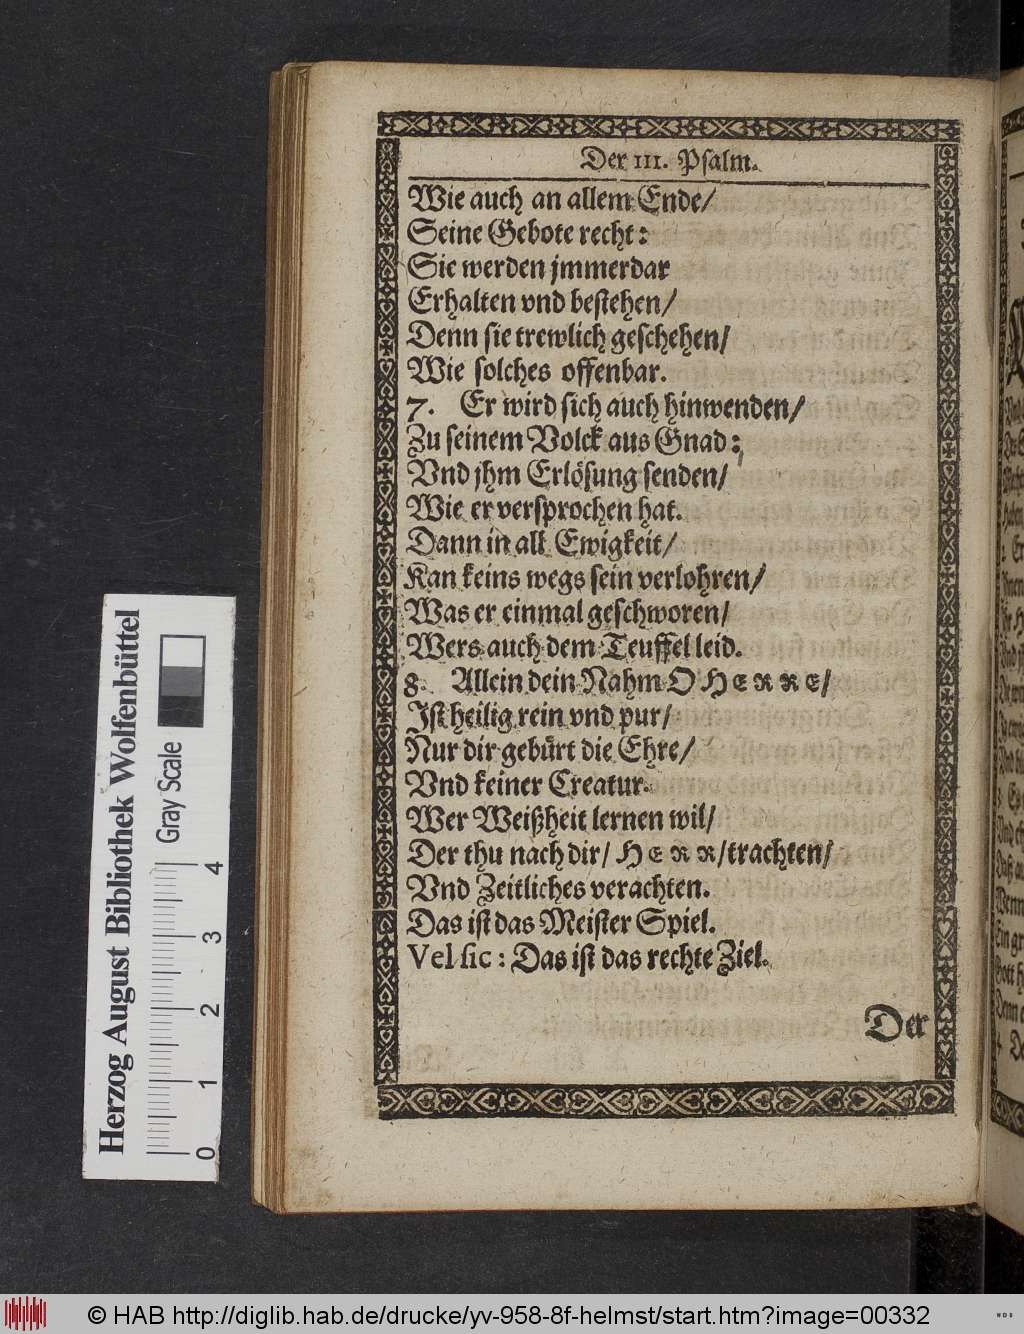 Der III. Psalm.
Wie auch an allem Ende/
Seine Gebote recht:
Sie werden jmmerdar
Erhalten vnd bestehen/
Denn sie trewlich geschehen/
Wie solches offenbar.
7. Er wird sich auch hinwenden/
Zu seinem Volck aus Gnad:
Vnd jhm Erlösung senden/
Wie er versprochen hat.
Dann in all Ewigkeit/
Kan keins wegs sein verlohren/
Was er einmal geschworen/
Wers auch dem Teuffel leid.
8. Allein dein Nahm O HERRE/
Ist heilig rein vnd pur/
Nur dir gebürt die Ehre/
Vnd keiner Creatur.
Wer Weißheit lernen wil/
Der thu nach dir/ HERR/trachten/
Vnd Zeitliches verachten.
Das ist das Meister Spiel.
Vel sic: Das ist das rechte Ziel.
Der
Herzog August Bibliothek Wolfenbüttel
Gray Scale
0 1 2 3 4
© HAB http://diglib.hab.de/drucke/yv-958-8f-helmst/start.htm?image=00332